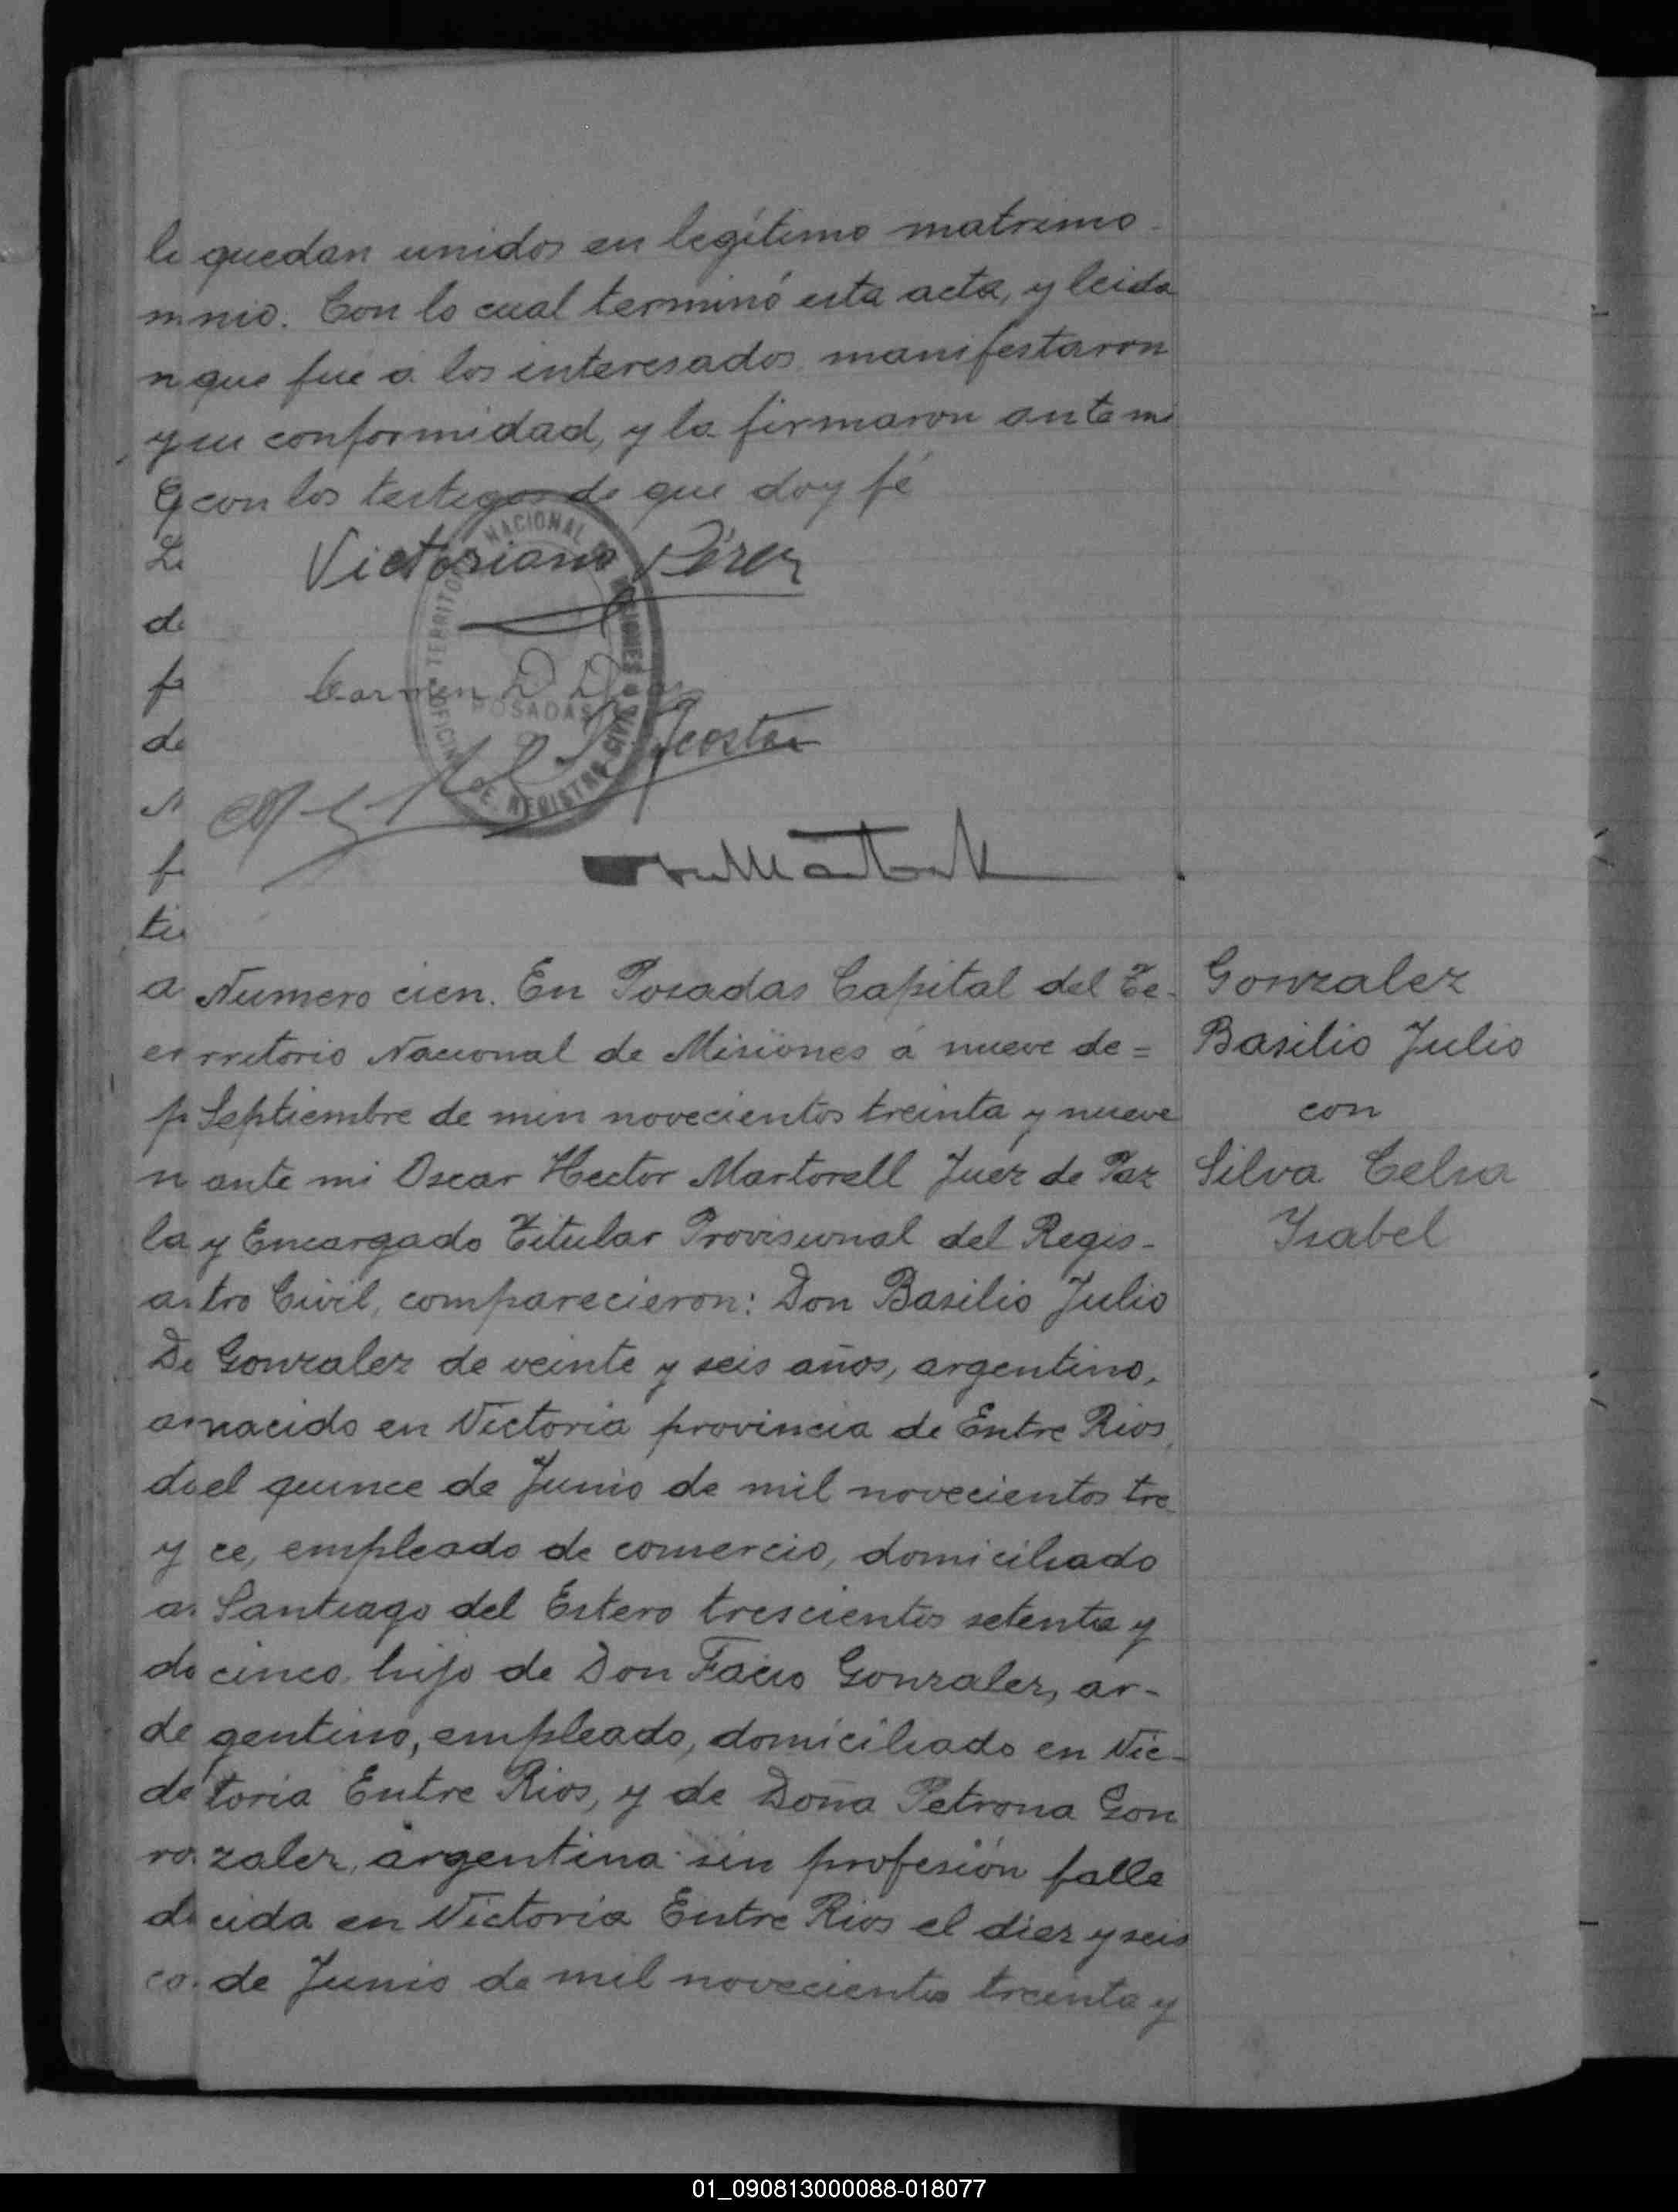 quedan unidos en legítimo matrimo-
nio. Con lo cual terminó esta acta, y leida
que fue á los interesados manifestaron
su conformidad, y la firmaron ante mi
con los testigos de que doy fé
Victoriano Pérez
Carmen D.
Acosta
NACIONAL
POSADAS
DE REGISTRO CIVIL
Numero cien. En Posadas Capital del Te-
rritorio Nacional de Misiones á nueve de=
Septiembre de min novecientos treinta y nueve
ante mi Oscar Hector Martorell Juez de Paz
y Encargado Titular Provisional del Regis-
tro Civil, comparecieron: Don Basilio Julio
Gonzalez de veinte y seis años, argentino,
nacido en Victoria provincia de Entre Rios,
el quince de Junio de mil novecientos tre
ce, empleado de comercio, domiciliado
Santiago del Estero trescientos setenta y
cinco. hijo de Don Facio Gonzalez, ar-
gentino, empleado, domiciliado en Vic-
toria Entre Rios, y de Doña Petrona Gon
zalez, argentina sin profesión falle
cida en Victoria Entre Rios el diez y seis
de Junio de mil novecientos treinta y
Gonzalez
Basilio Julio
con
Silva Celsa
Ysabel
01_090813000088-018077